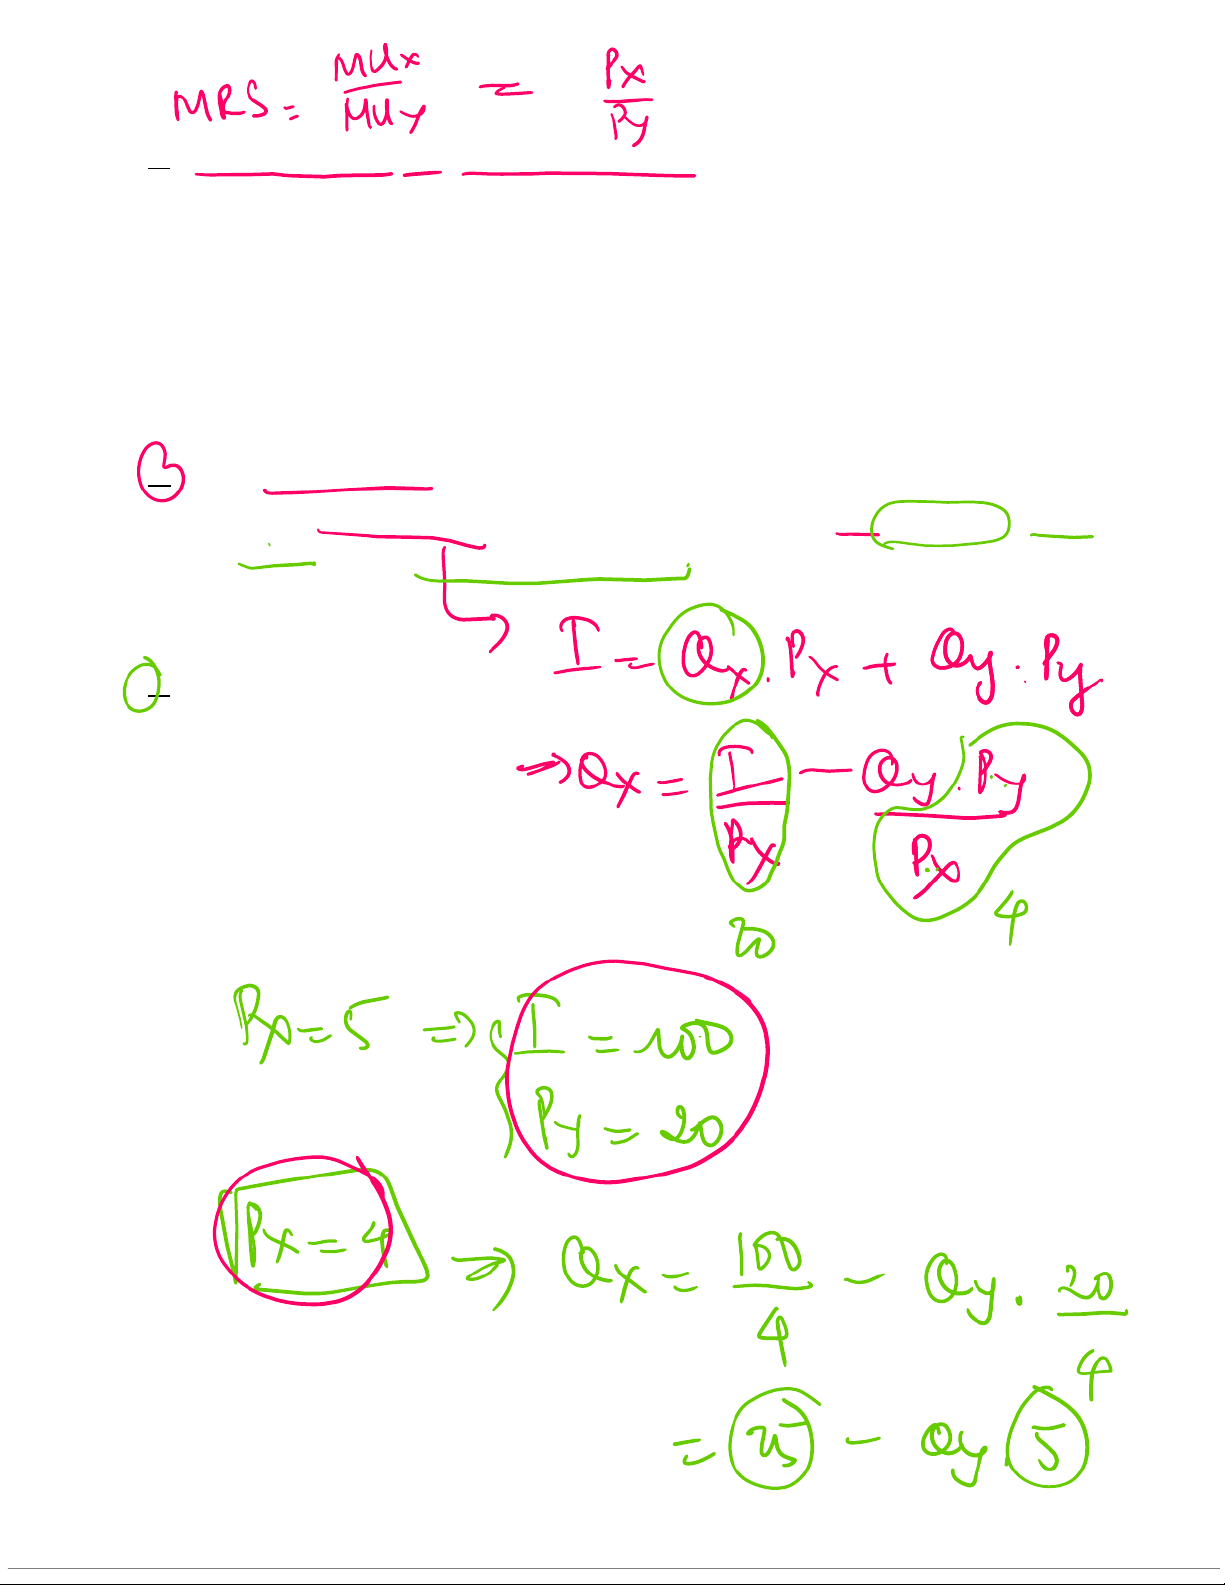 MRS = MUx/MUy = Px/Py
B
I = Qx . Px + Qy . Py
⇒ Qx = I/Px - Qy . Py/Px
20
4
Px = 5 ⇒ { I = 100
Py = 20
Px = 4 ⇒ Qx = 100/4 - Qy . 20/4
= 25 - Qy 5